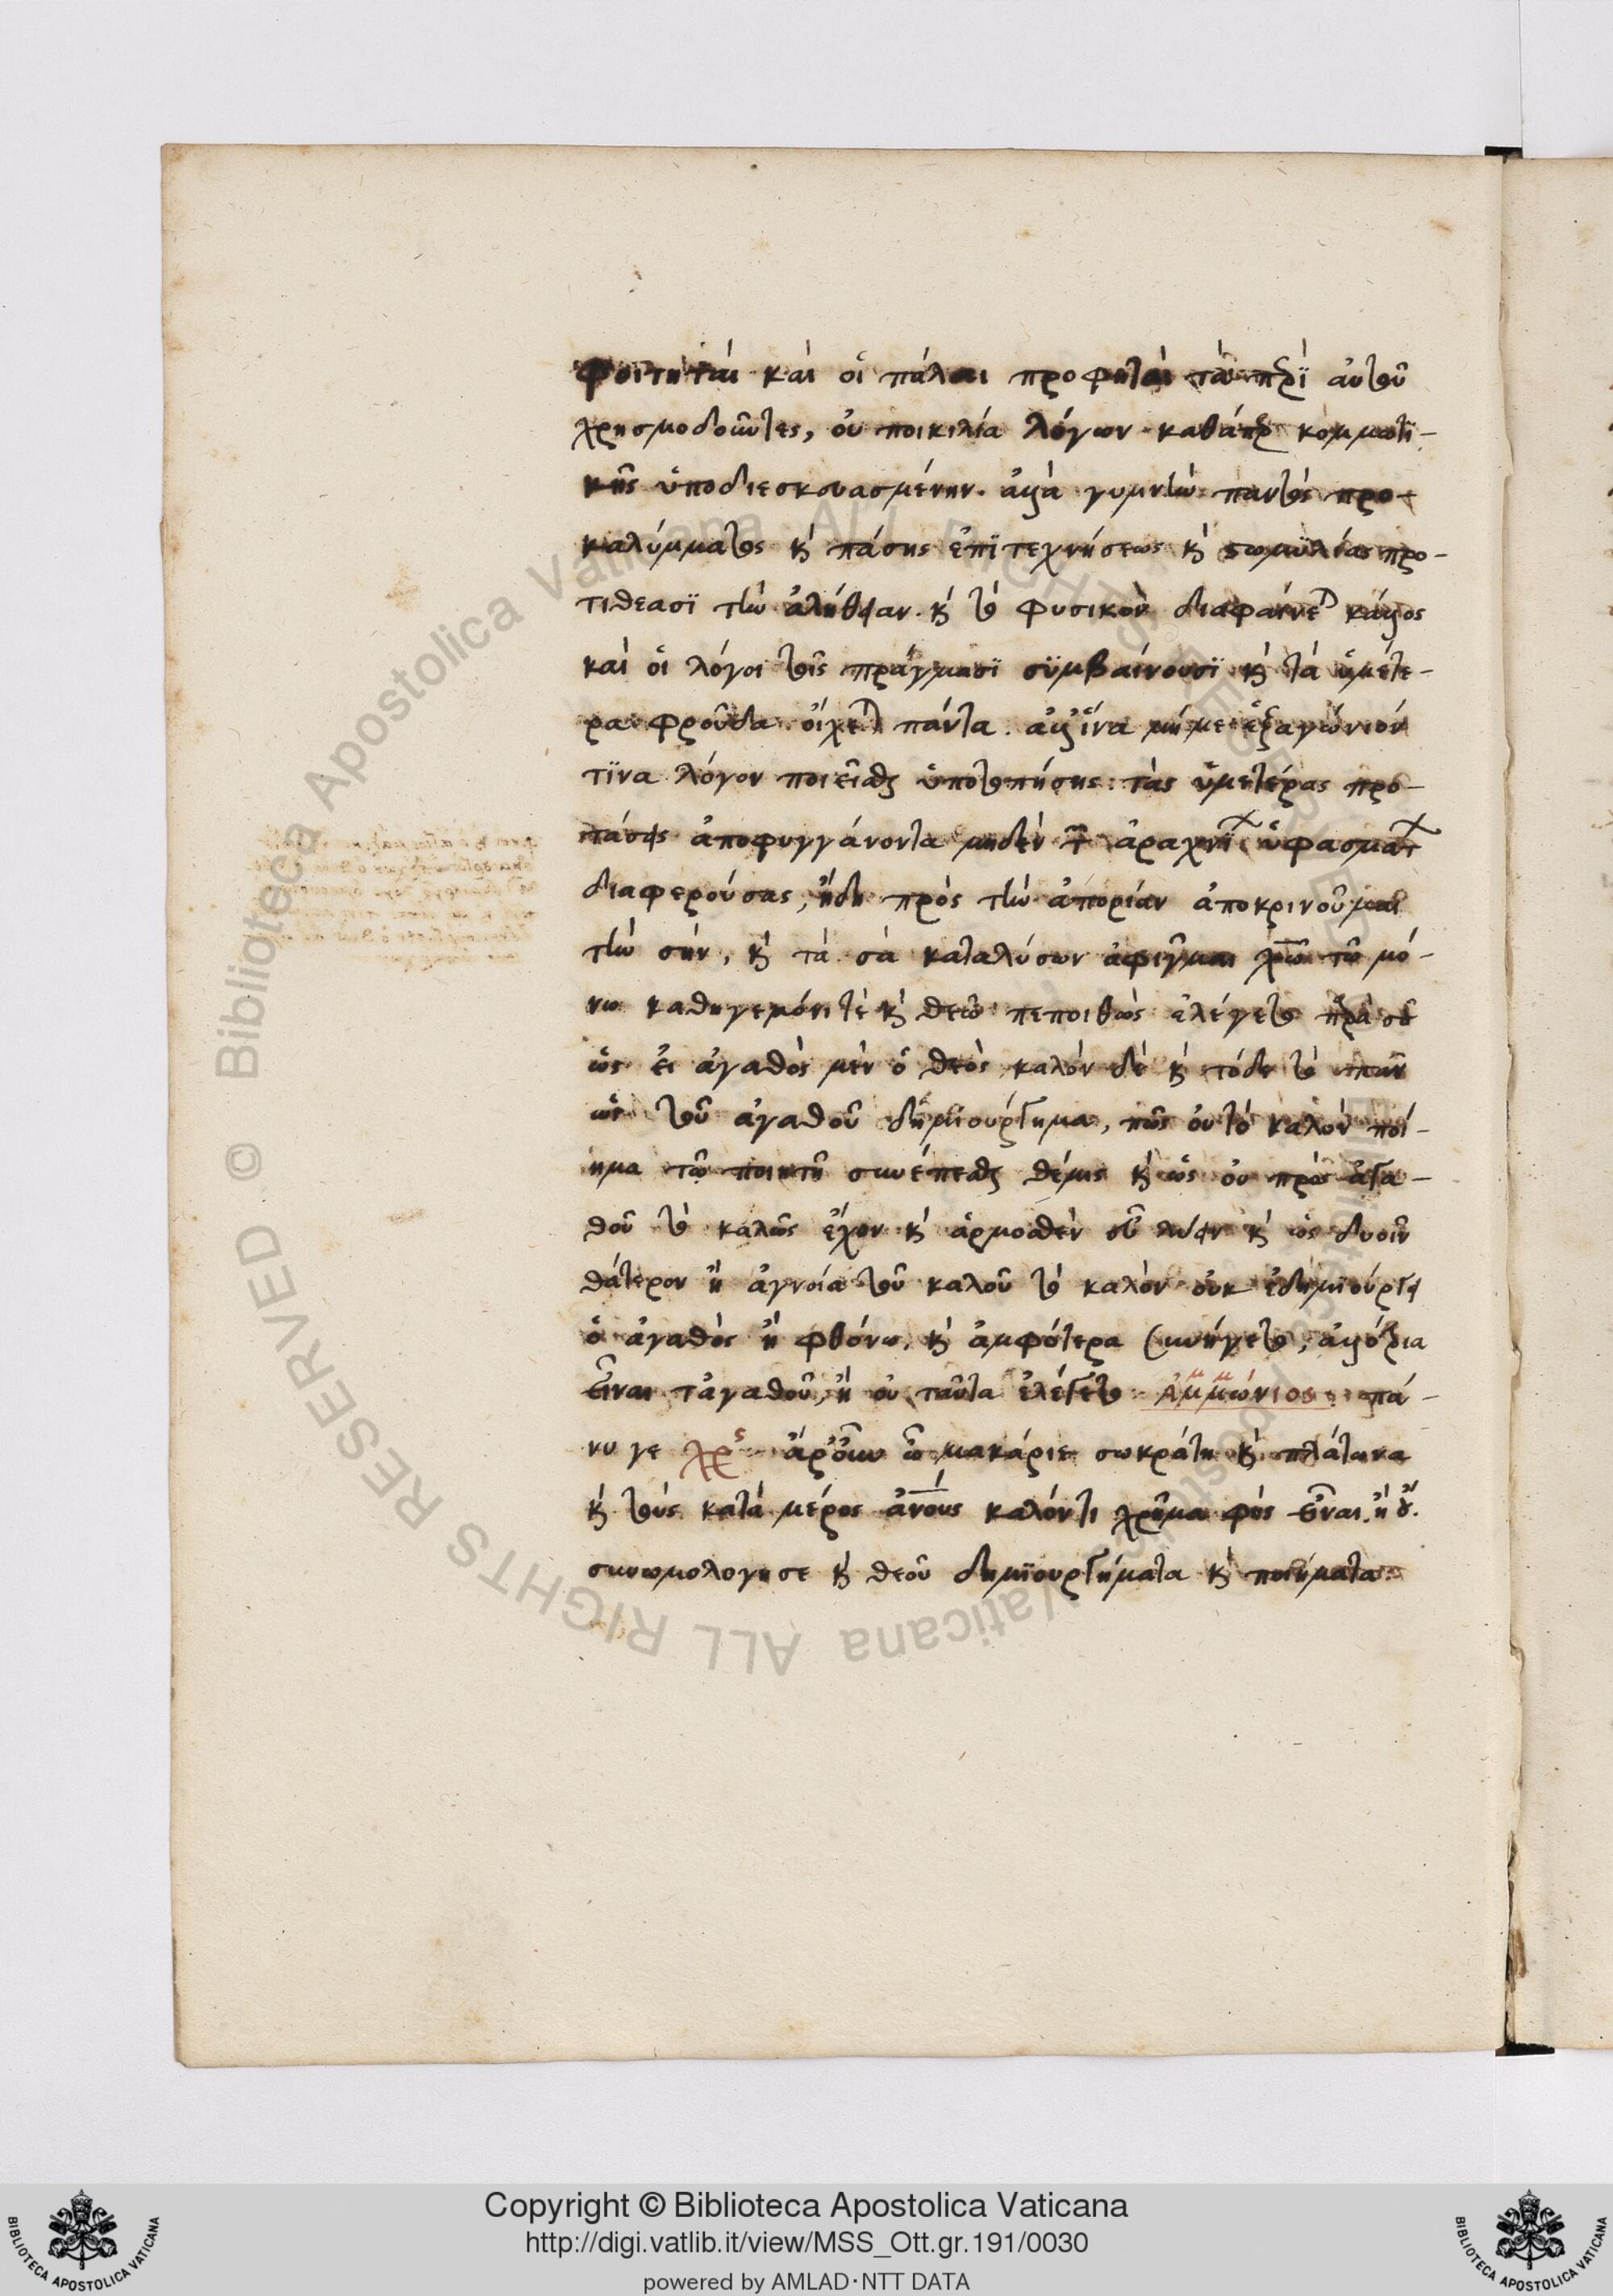 φοιτηταὶ καὶ οἱ πάλαι προφῆται τὰ περὶ αὐτοῦ
χρησμοδοῦντες, οὐ ποικιλία λόγων καθάπερ κομμωτι-
κῆς ὑποδιεσκευασμένην. ἀλλὰ γυμνὴν παντὸς προ-
καλύμματος καὶ πάσης ἐπιτεχνήσεως καὶ στωμυλίας προ-
τιθέασι τὴν ἀλήθειαν. καὶ τὸ φυσικὸν διαφαίνεται κάλλος
καὶ οἱ λόγοι τοῖς πράγμασι συμβαίνουσι καὶ τὰ ὑμέτε-
ρα φροῦδα οἴχεται πάντα. ἀλλ' ἵνα μή με ἐξαγώνιόν
τινα λόγον ποιεῖσθαι ὑποτοπήσῃς τὰς ὑμετέρας προ-
τάσεις ἀποφυγγάνοντα μηδὲν τῶν ἀραχνίων ὑφασμάτων
διαφερούσας, ἤδη πρὸς τὴν ἀπορίαν ἀποκρινοῦμαι
τὴν σήν, καὶ τὰ σὰ καταλύσων ἀφῖγμαι χριστῷ τῷ μό-
νῳ καθηγεμόνι τὲ καὶ θεῷ πεποιθὼς ἐλέγετο παρὰ σοῦ
ὡς εἰ ἀγαθὸς μὲν ὁ θεὸς καλὸν δὲ καὶ τόδε τὸ πᾶν
ὡς τοῦ ἀγαθοῦ δημιούργημα, πῶς οὐ τὸ καλὸν ποί-
ημα τῷ ποιητῇ συνέπεσθαι θέμις καὶ ὡς οὐ πρὸς ἀγα-
θοῦ τὸ καλῶς ἔχον καὶ ἁρμοσθὲν εὖ λύειν καὶ ὡς δυοῖν
θάτερον ἢ ἀγνοίᾳ τοῦ καλοῦ τὸ καλὸν οὐκ ἐδημιούργει
ὁ ἀγαθὸς ἢ φθόνῳ, καὶ ἀμφότερα συνήγετο, ἀλλότρια
εἶναι τἀγαθοῦ, ἢ οὐ ταῦτα ἐλέγετο Ἀμμώνιος πά-
νυ γε χρς ἆρ' οὖν ὦ μακάριε σωκράτη καὶ πλάτωνα
καὶ τοὺς κατὰ μέρος ἀνους καλόν τι χρῆμα φὴς εἶναι. ἢ οὔ.
συνωμολόγησε καὶ θεοῦ δημιουργήματα καὶ ποιήματα
Copyright © Biblioteca Apostolica Vaticana
http://digi.vatlib.it/view/MSS_Ott.gr.191/0030
powered by AMLAD·NTT DATA